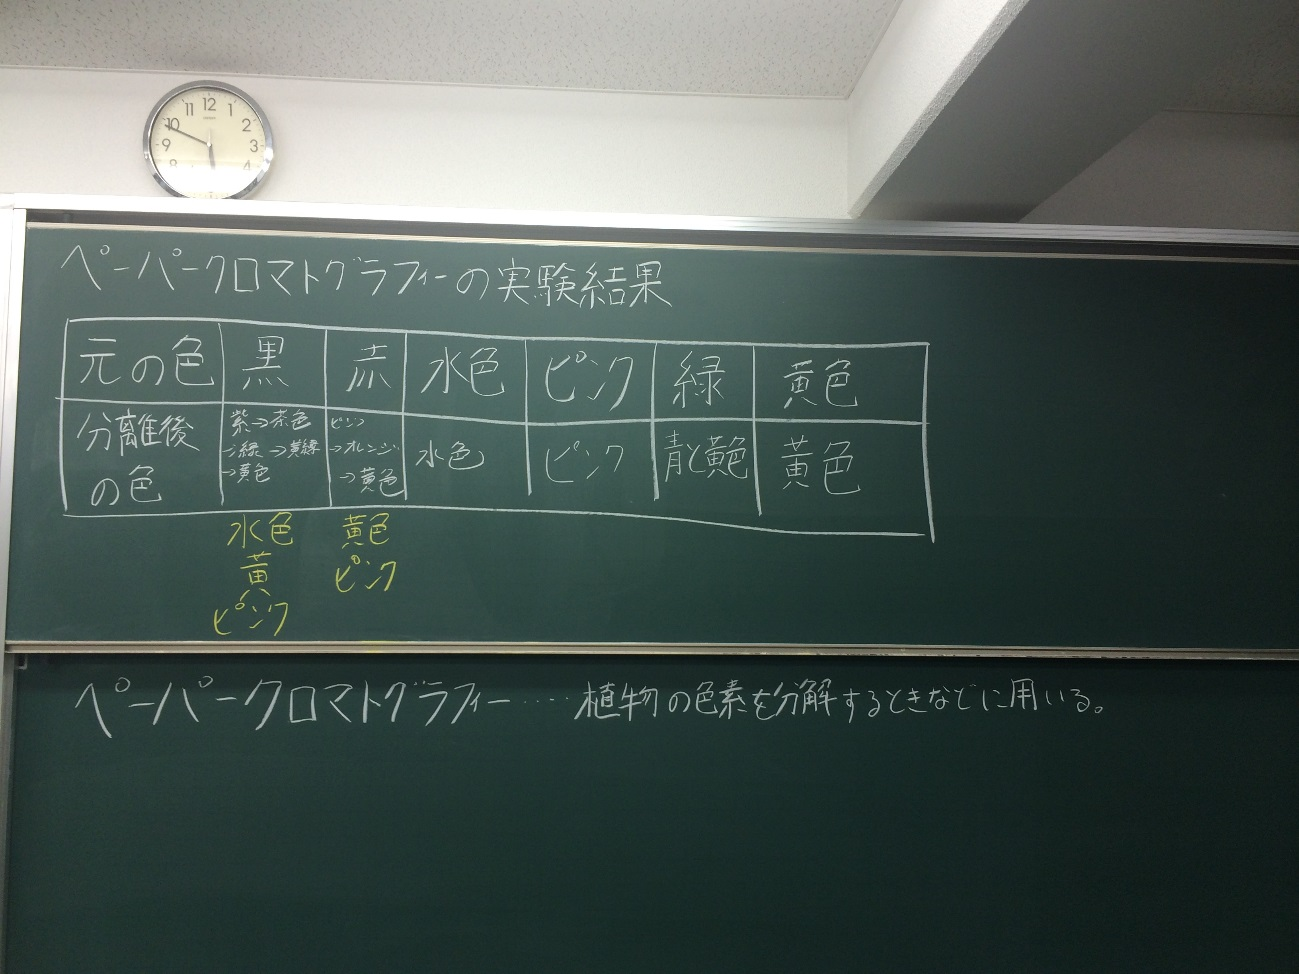 11 12 1
10 2
9 3
8 4
ペーパークロマトグラフィーの実験結果
元の色 黒 赤 水色 ピンク 緑 黄色
分離後の色 紫→茶色→緑→黄緑→黄色 ピンク→オレンジ→黄色 水色 ピンク 青と黄色 黄色
水色 黄色
黄 ピンク
ピンク
ペーパークロマトグラフィー……植物の色素を分解するときなどに用いる。